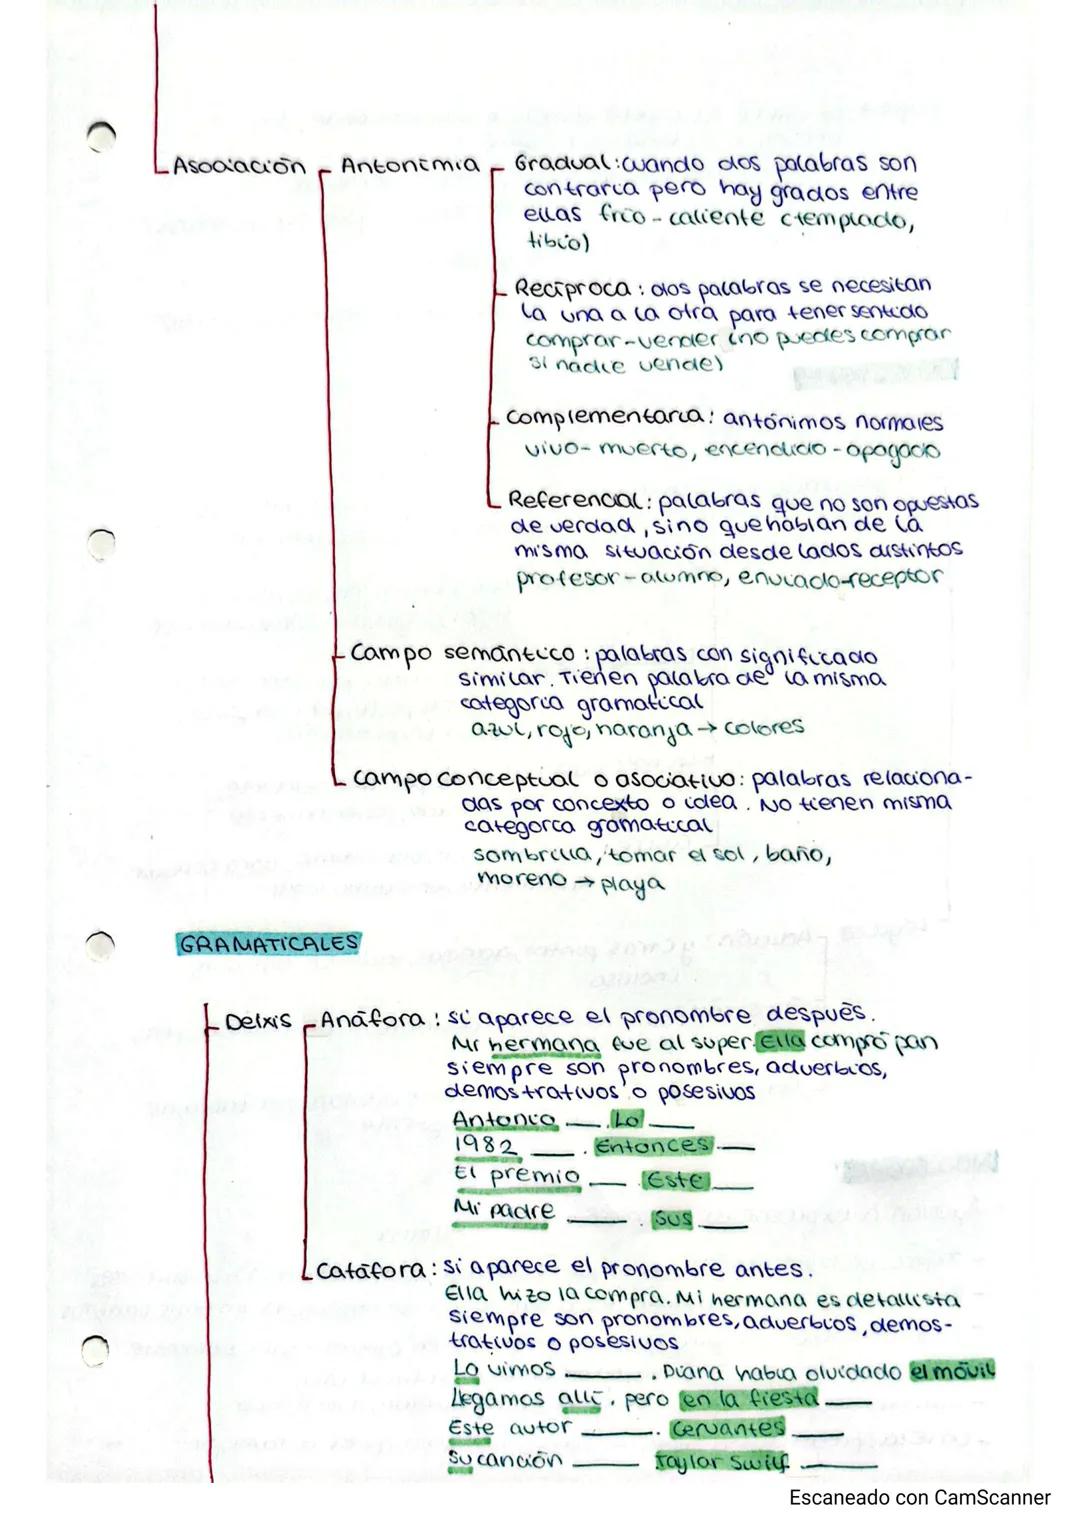 Asociación Antonimia Gradual: cuando dos palabras son
contraria pero hay grados entre
ellas frío - caliente (templado,
tibio)
Recíproca: dos palabras se necesitan
la una a la otra para tener sentido
comprar-vender (no puedes comprar
si nadie vende)
Complementaria: antónimos normales
vivo- muerto, encendido - apagado
Referencial: palabras que no son opuestas
de verdad, sino que hablan de la
misma situación desde lados distintos
profesor - alumno, enviado-receptor
Campo semántico: palabras con significado
similar. Tienen palabra de la misma
categoría gramatical
azul, rojo, naranja → colores
Campo conceptual o asociativo: palabras relaciona-
das por concexto o idea. No tienen misma
categoría gramatical
sombrilla, tomar el sol, baño,
moreno → playa
GRAMATICALES
Deíxis Anáfora: si aparece el pronombre después.
Mi hermana fue al super. Ella compró pan
siempre son pronombres, adverbios,
demostrativos o posesivos
Antonio __. Lo __
1982 __. Entonces __
El premio __. Este __
Mi padre __. Sus __
Catáfora: si aparece el pronombre antes.
Ella hizo la compra. Mi hermana es detallista
siempre son pronombres, adverbios, demos-
trativos o posesivos
Lo vimos __. Diana había olvidado el móvil
Llegamos allí, pero en la fiesta __
Este autor __. Cervantes __
Su canción __ Taylor Swift __
Escaneado con CamScanner